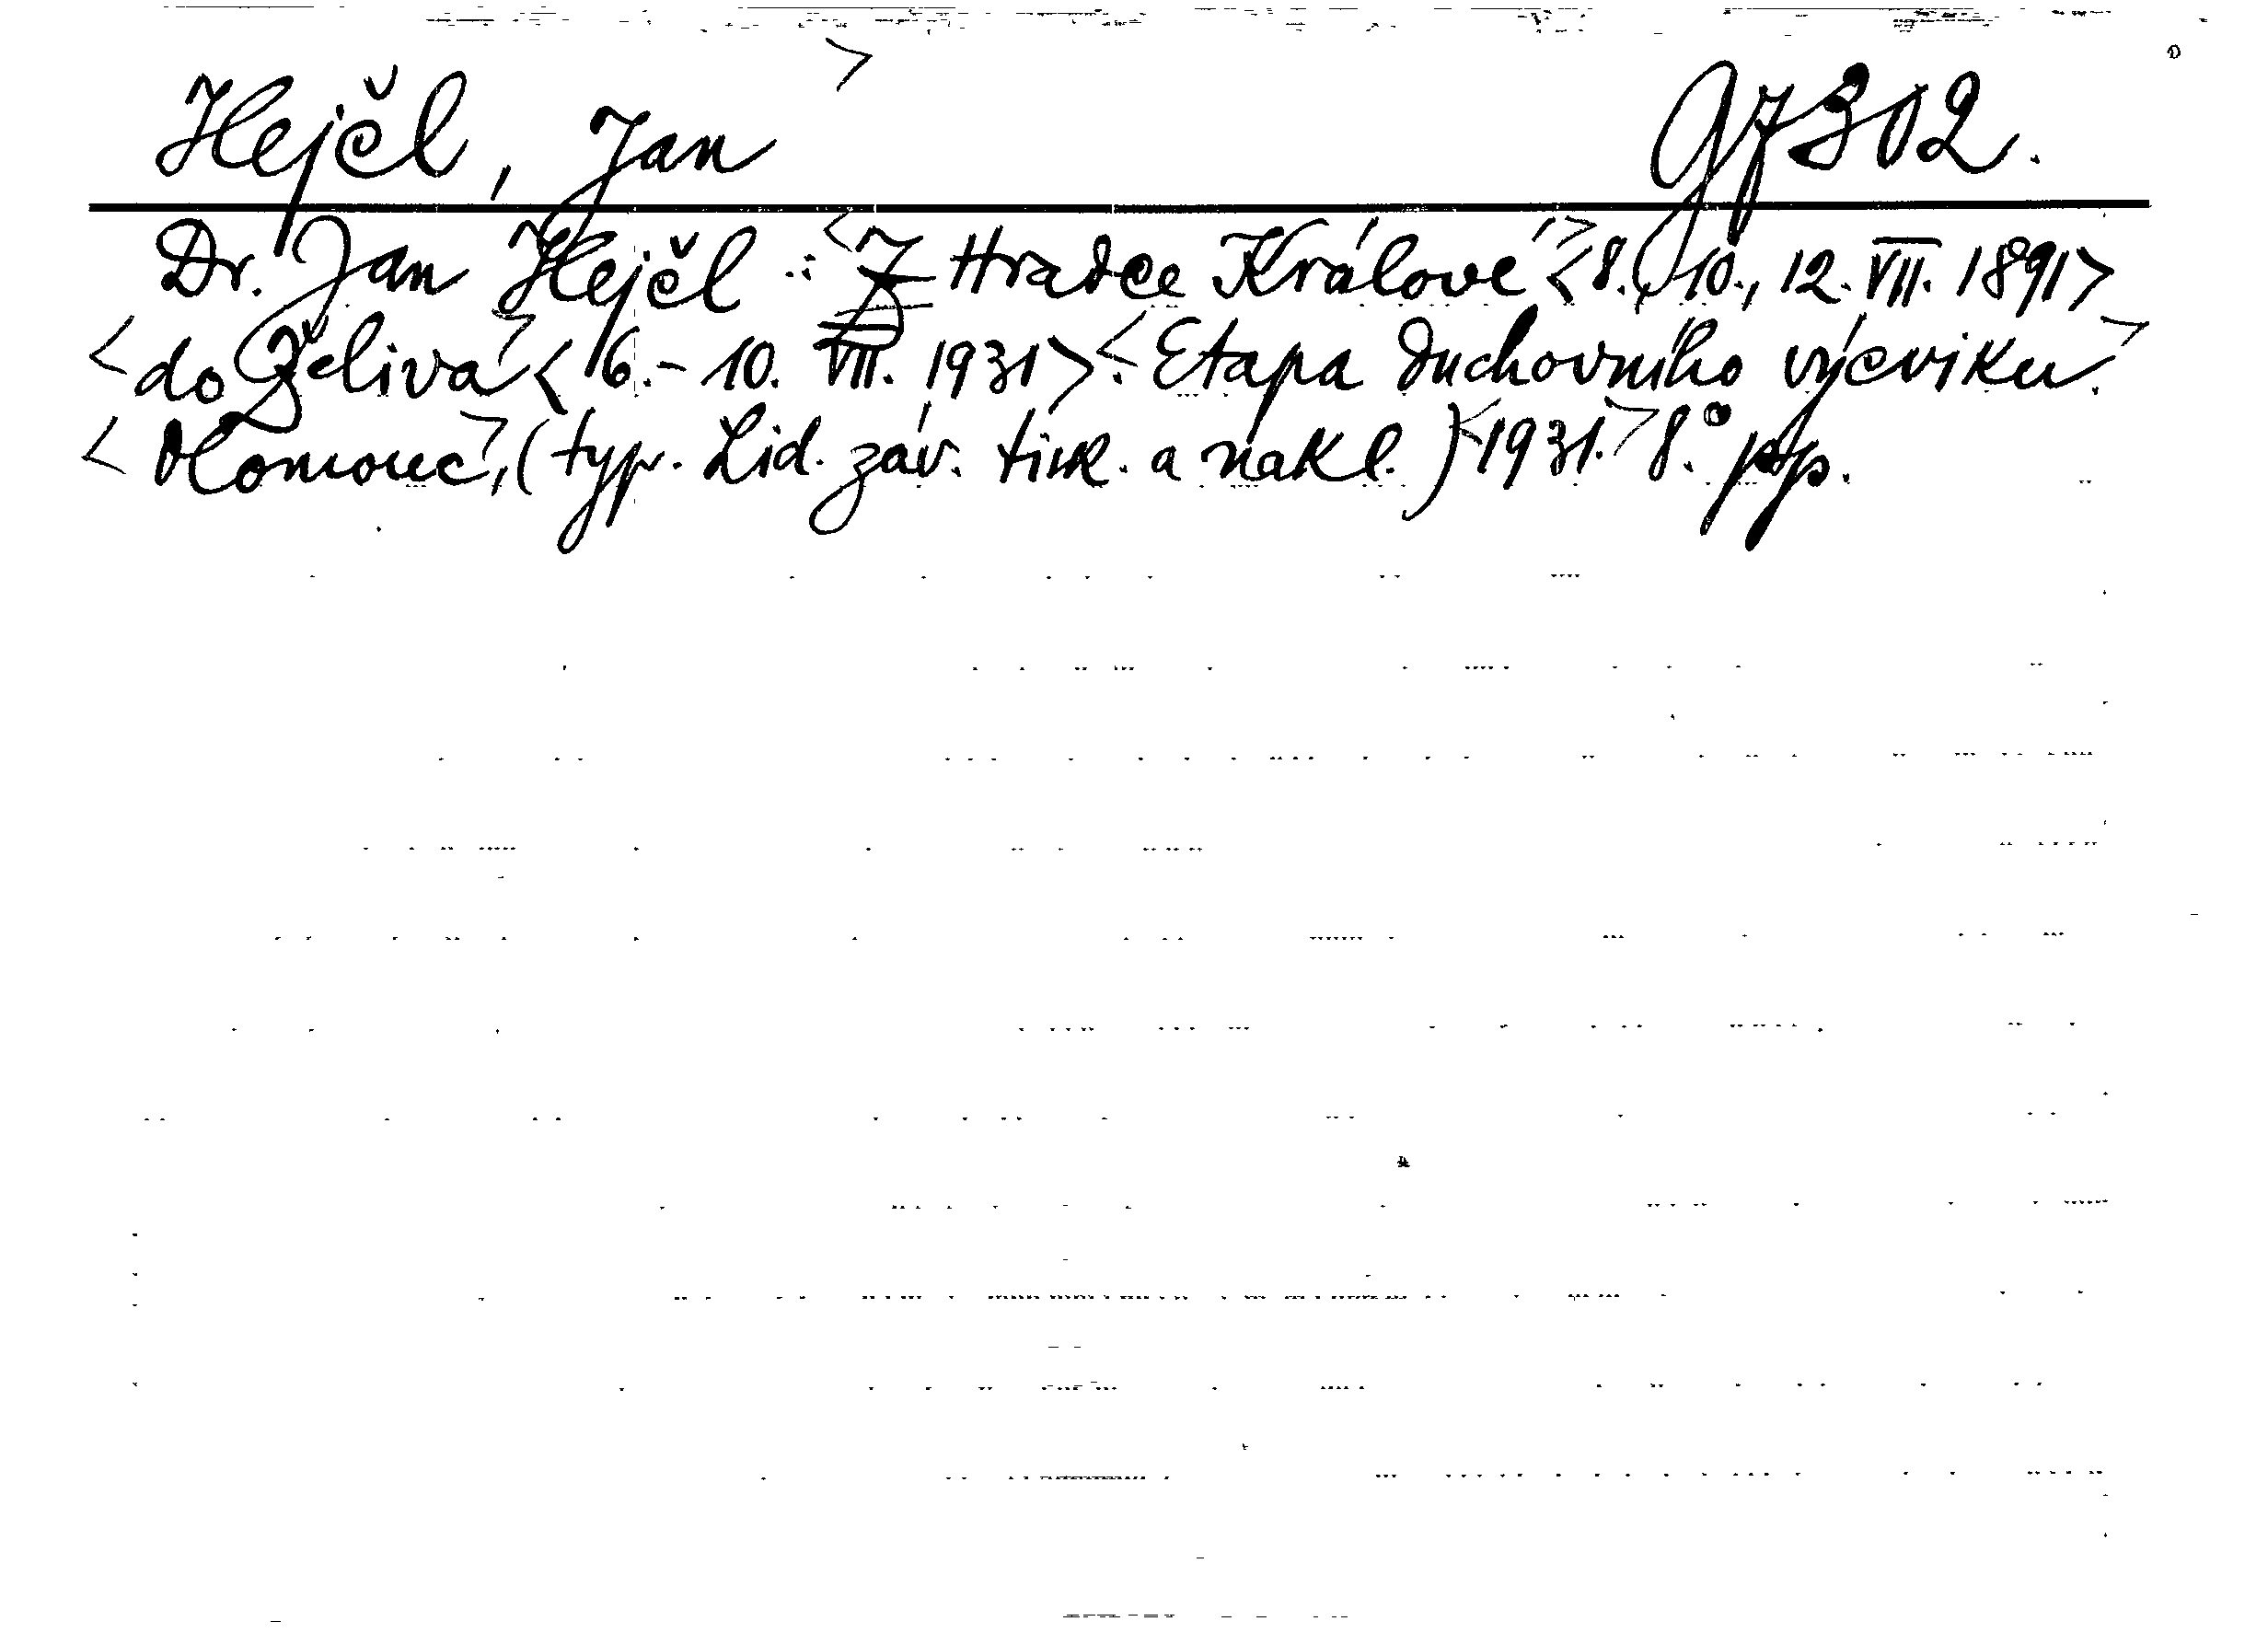 Hejčl, Jan > 97302.
Dr. Jan Hejčl : <Z Hradce Králové> <8., 10., 12. VII. 1891>
<do Želiva> <6.- 10. VII. 1931> <: Etapa duchovního výcviku.>
<Olomouc>, (typ. Lid. záv. tisk. a nakl.) <1931.> 8.° pp.